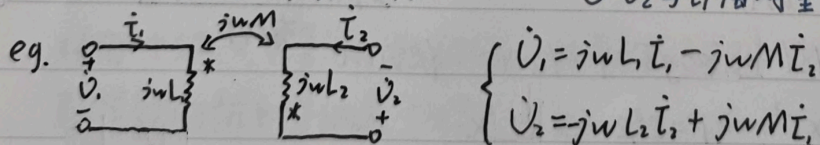 eg. İ₁ jωM İ₂
+ U̇₁ − jωL₁ * jωL₂ * − U̇₂ +
U̇₁=jωL₁İ₁-jωMİ₂
U̇₂=-jωL₂İ₂+jωMİ₁